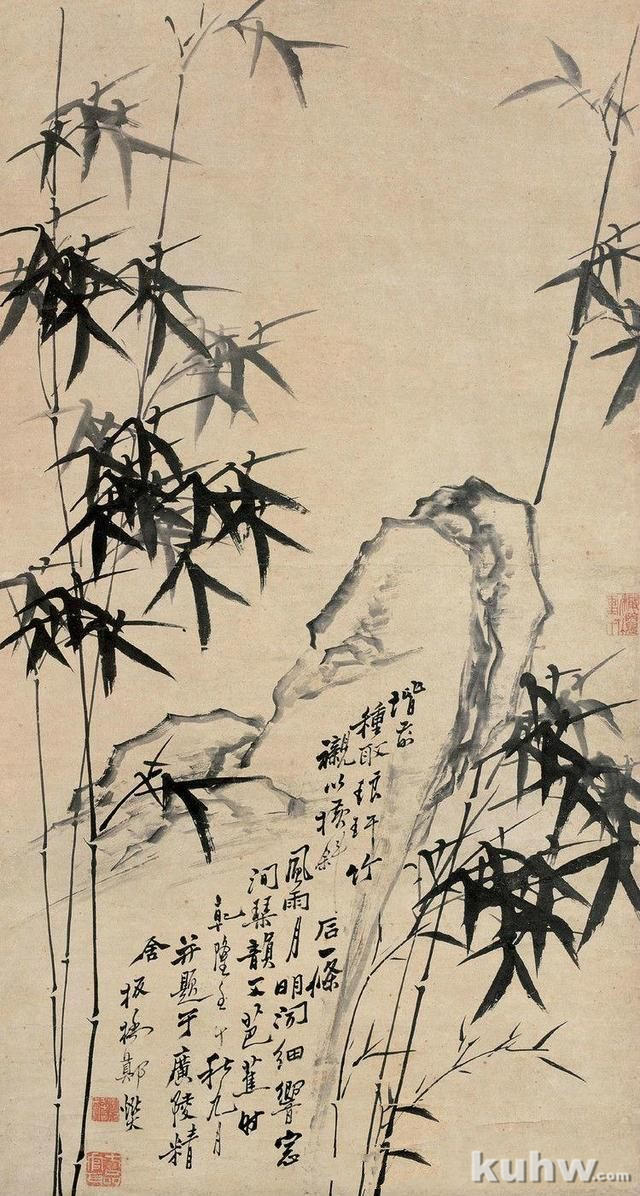 階前
種取琅玕竹
襯以橫斜
石一條
風雨月明聞細響窓
間琴韻又芭蕉時
乾隆壬午秋九月
并題于廣陵精
舍板橋鄭燮
kuhw.com